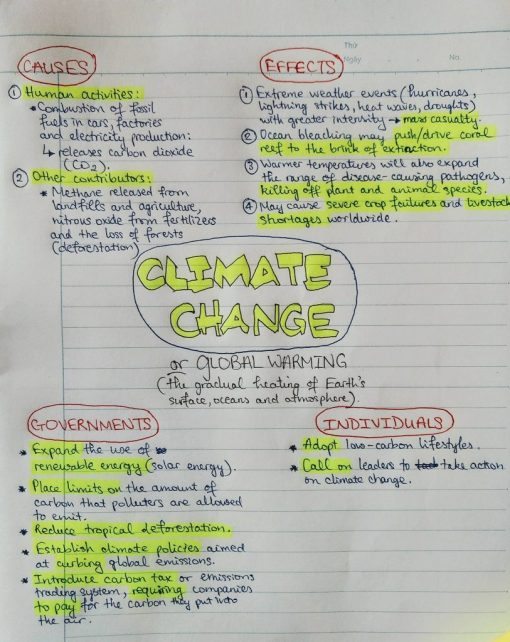 Thứ
Ngày
No.
CAUSES
① Human activities:
* Combustion of fossil
fuels in cars, factories
and electricity production:
↳ releases carbon dioxide
(CO₂).
② Other contributors:
* Methane released from
landfills and agriculture,
nitrous oxide from fertilizers
and the loss of forests
(deforestation)
EFFECTS
① Extreme weather events (hurricanes,
lightning strikes, heat waves, droughts)
with greater intensity → mass casualty.
② Ocean bleaching may push/drive coral
reef to the brink of extinction.
③ Warmer temperatures will also expand
the range of disease-causing pathogens,
killing off plant and animal species.
④ May cause severe crop failures and livestock
shortages worldwide.
CLIMATE
CHANGE
or GLOBAL WARMING
(the gradual heating of Earth's
surface, oceans and atmosphere).
GOVERNMENTS
* Expand the use of
renewable energy (solar energy).
* Place limits on the amount of
carbon that polluters are allowed
to emit.
* Reduce tropical deforestation.
* Establish climate policies aimed
at curbing global emissions.
* Introduce carbon tax or emissions
trading system, requiring companies
to pay for the carbon they put into
the air.
INDIVIDUALS
* Adopt low-carbon lifestyles.
* Call on leaders to take action
on climate change.